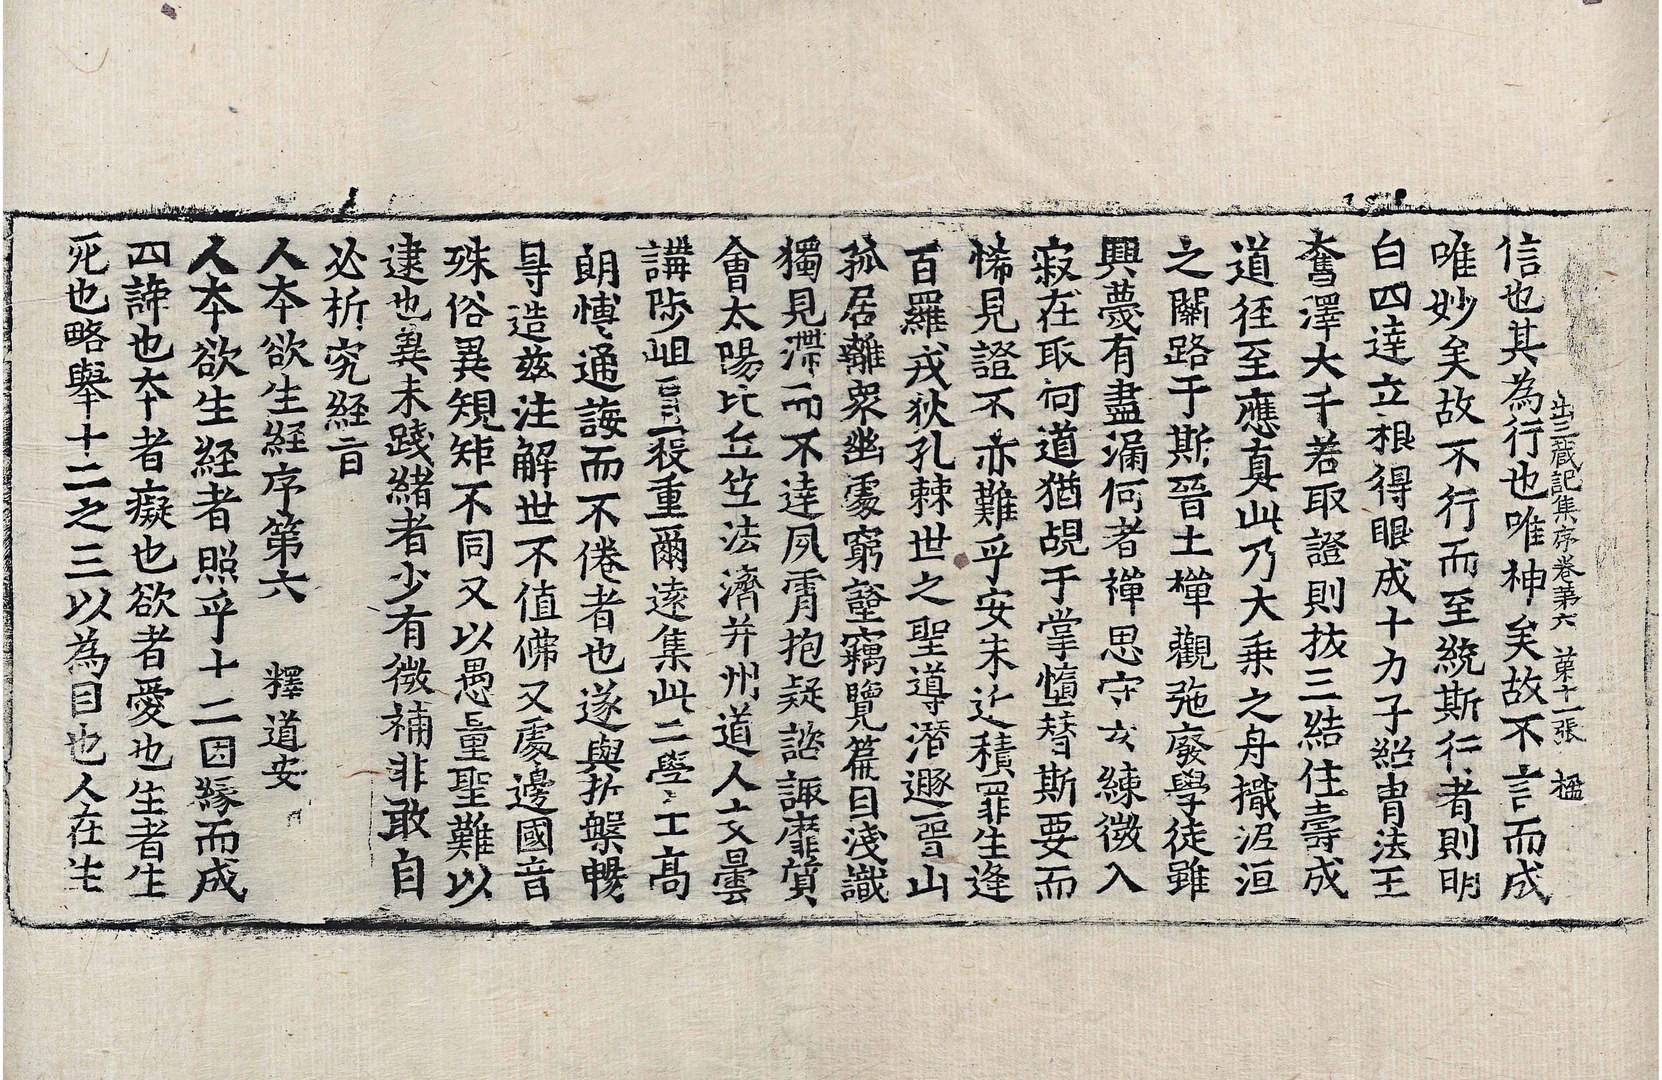 出三藏記集序卷第六　第十一張　楹
信也其為行也唯神矣故不言而成
唯妙矣故不行而至統斯行者則明
白四達立根得眼成十力子紹冑法王
奮澤大千若取證則拔三結住壽成
道徑至應真此乃大乗之舟檝泥洹
之關路于斯晉土禪觀弛廢學徒雖
興蔑有盡漏何者禪思守玄練微入
寂在取何道猶覘于掌墮替斯要而
悕見證不亦難乎安未近積罪生逢
百羅戎狄孔棘世之聖導潛遯晉山
孤居離衆幽處窮壑竊覽篇目淺識
獨見滯而不達夙霄抱疑諮諏靡質
會太陽比丘竺法濟并州道人支曇
講陟岨冒寇重爾遠集此二學士高
朗博通誨而不倦者也遂與折槃暢
㝵造茲注解世不值佛又處邊國音
殊俗異規矩不同又以愚量聖難以
逮也冀未踐緒者少有微補非敢自
必析究経旨
人本欲生経序第六　釋道安
人本欲生経者照乎十二因縁而成
四諦也本者癡也欲者愛也生者生
死也略舉十二之三以為目也人在生